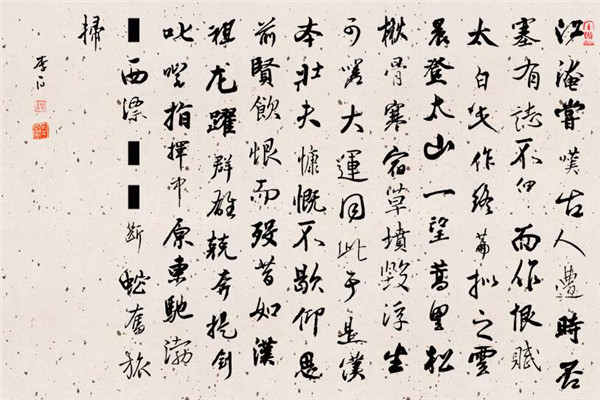 江淹嘗嘆古人遭時否
塞有誌不伸而作恨賦
太白作終篇擬之雲
晨登太山一望蒿里松
楸骨寒宿草墳毀浮生
可嗟大運同此于是僕
本壯夫慷慨不歇仰思
前賢飲恨而歿昔如漢
祖龙躍群雄競奔提劍
叱咤指揮中原東馳渤
西漂斷蛇奮旅
掃
李白